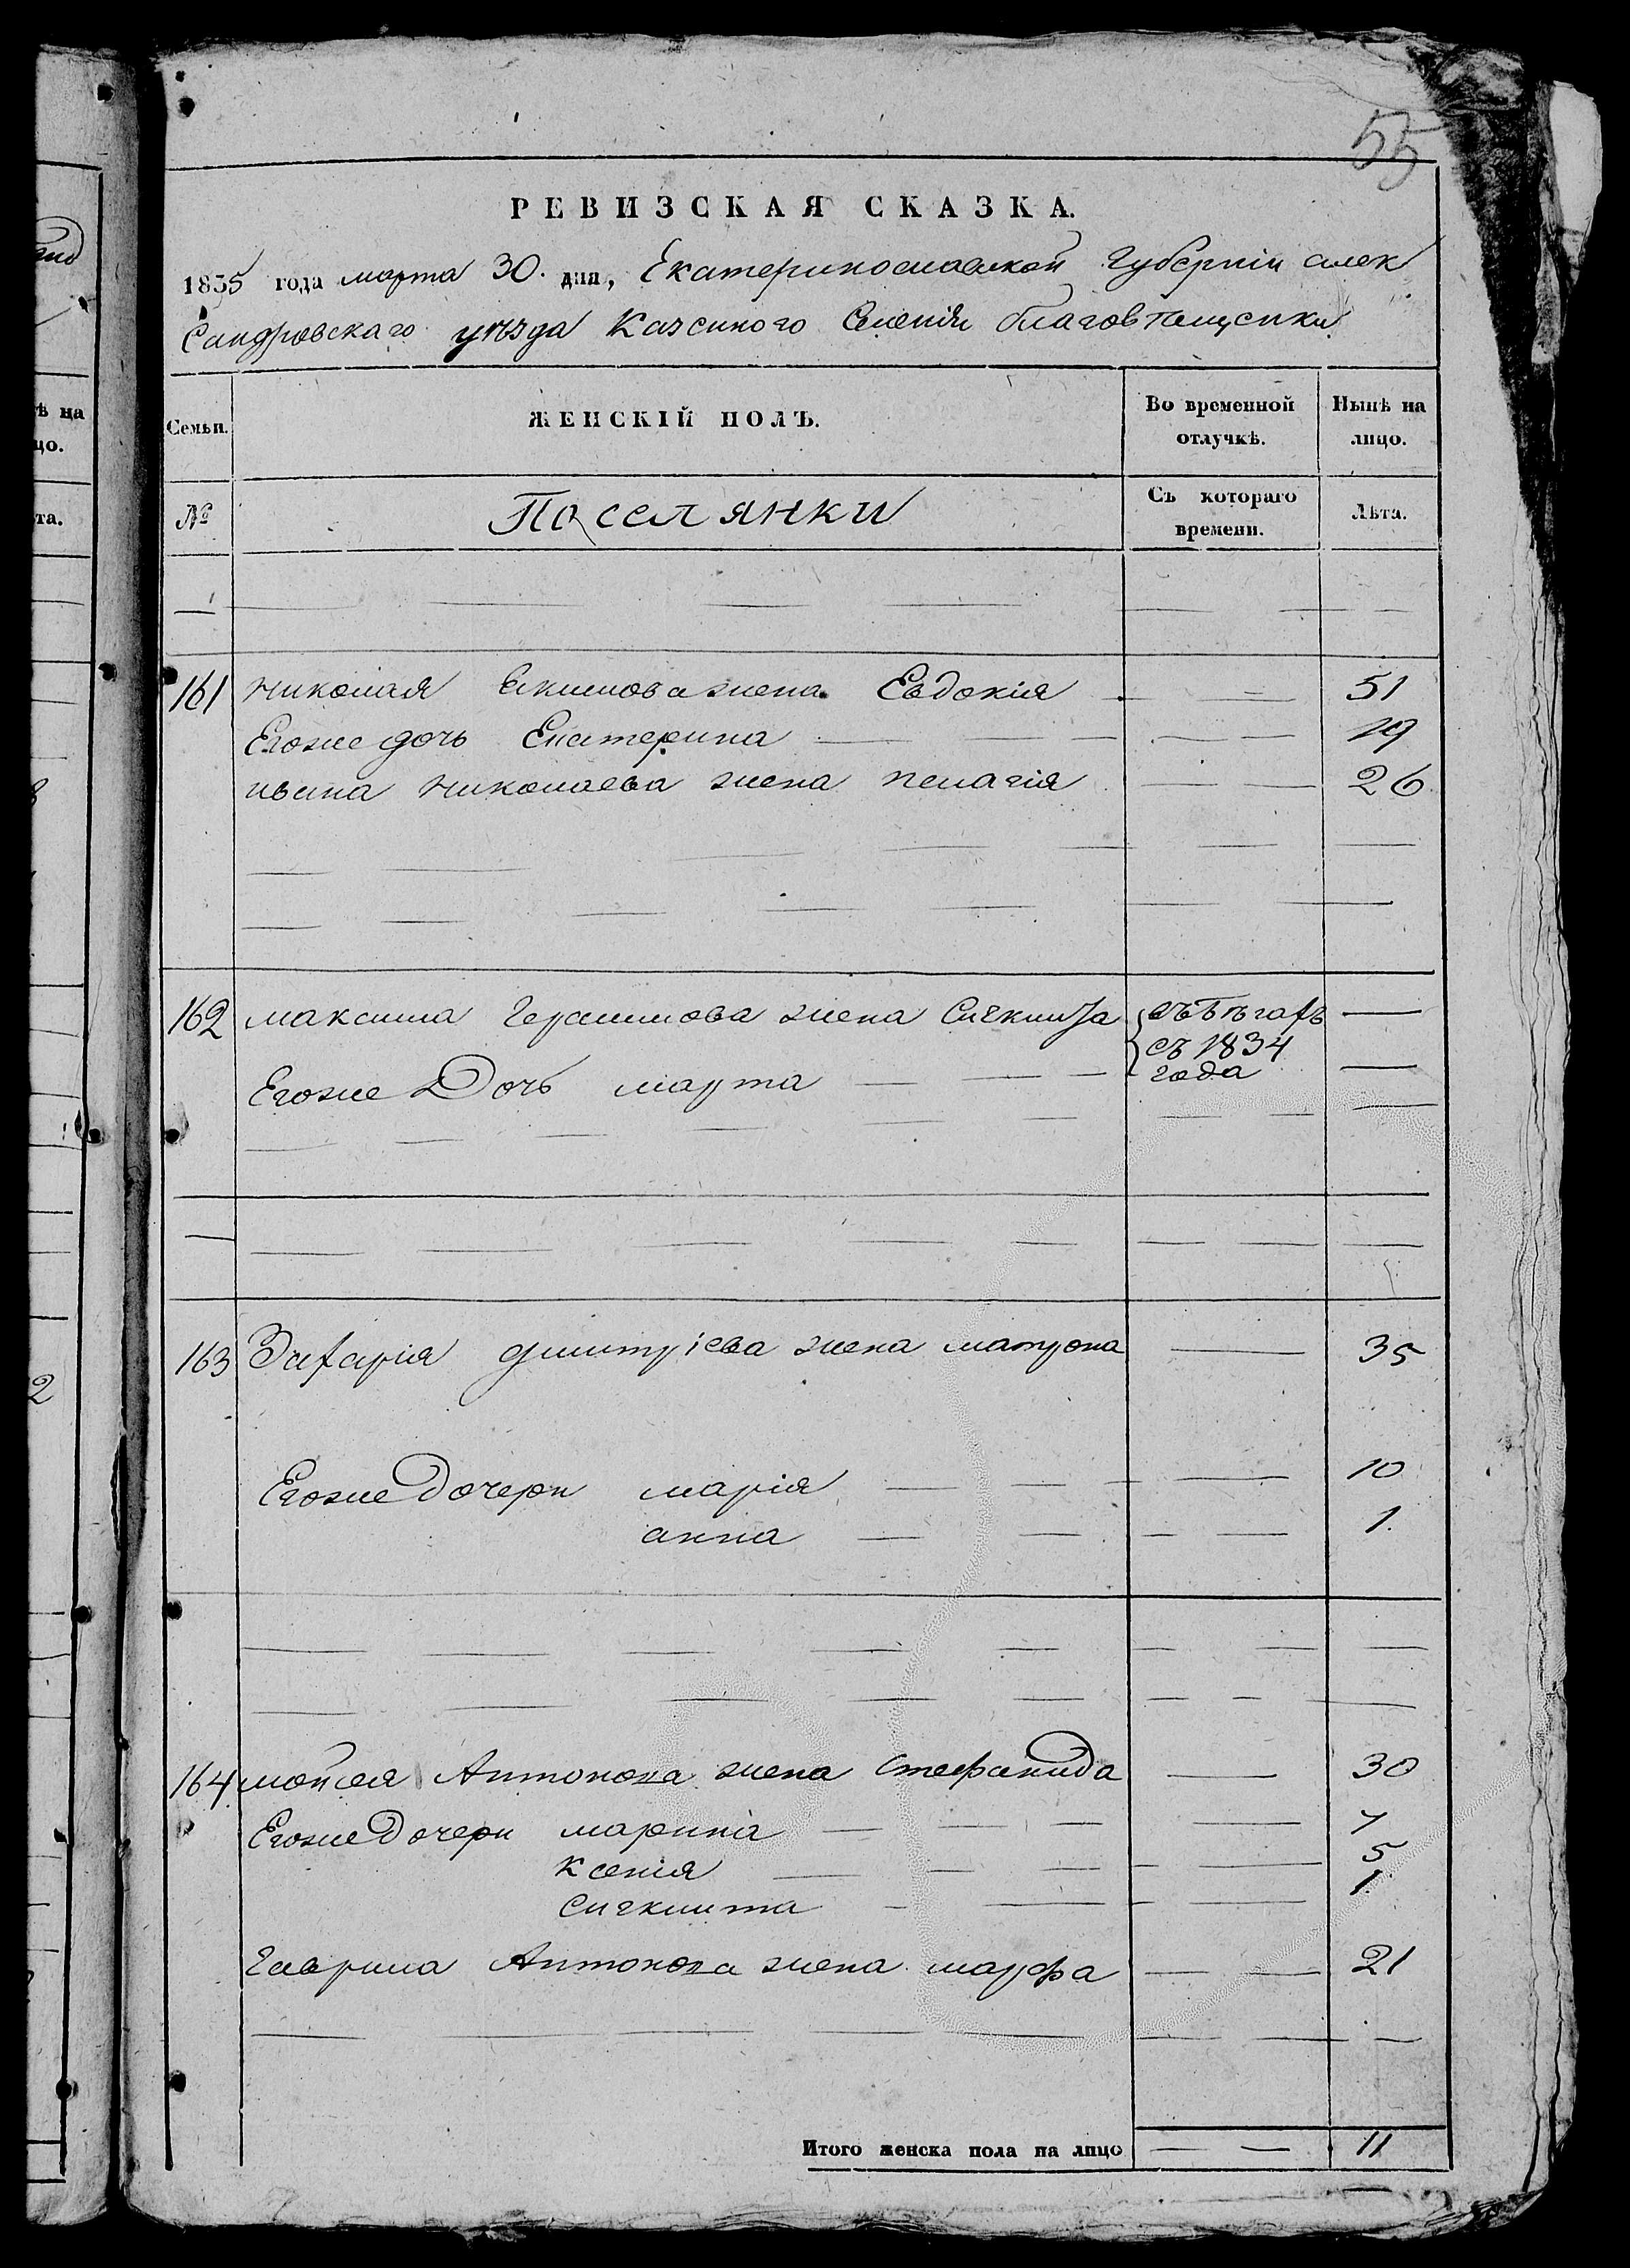 55
РЕВИЗСКАЯ СКАЗКА.
1835 года марта 30. дня, Екатеринославской Губерніи алек
сандровскаго уѣзда Казеннаго Селенія благовѣщенки
Семьи.
ЖЕНСКІЙ ПОЛЪ.
Во временной отлучкѣ.
Нынѣ на лицо.
№
Поселянки
Съ котораго времени.
Лѣта.
161 николая Екимова жена Евдокія 51
Егоже дочь Екатерина 19
ивана николаева жена пелагія 26
162 максима Герасимова жена въ бѣгахъ
съ 1834
Егоже Дочь марта года
163 Захарія дмитріева жена матрона 35
Егоже Дочери марія 10
анна 1.
164 мойсея Антонова жена стефанида 30
Егоже Дочери марина 7
Ксенія 5
1.
Гаврила Антонова жена марфа 21
Итого женска пола на лицо 11